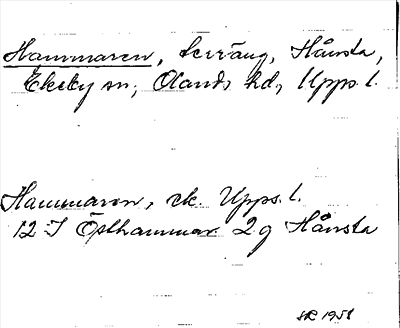 Hammaren, terräng, Hånsta,
Ekeby sn, Olands hd, Upps. l.
Hammaren, ek. Upps. l.
12 I Östhammar 2 g Hånsta
SR 1951